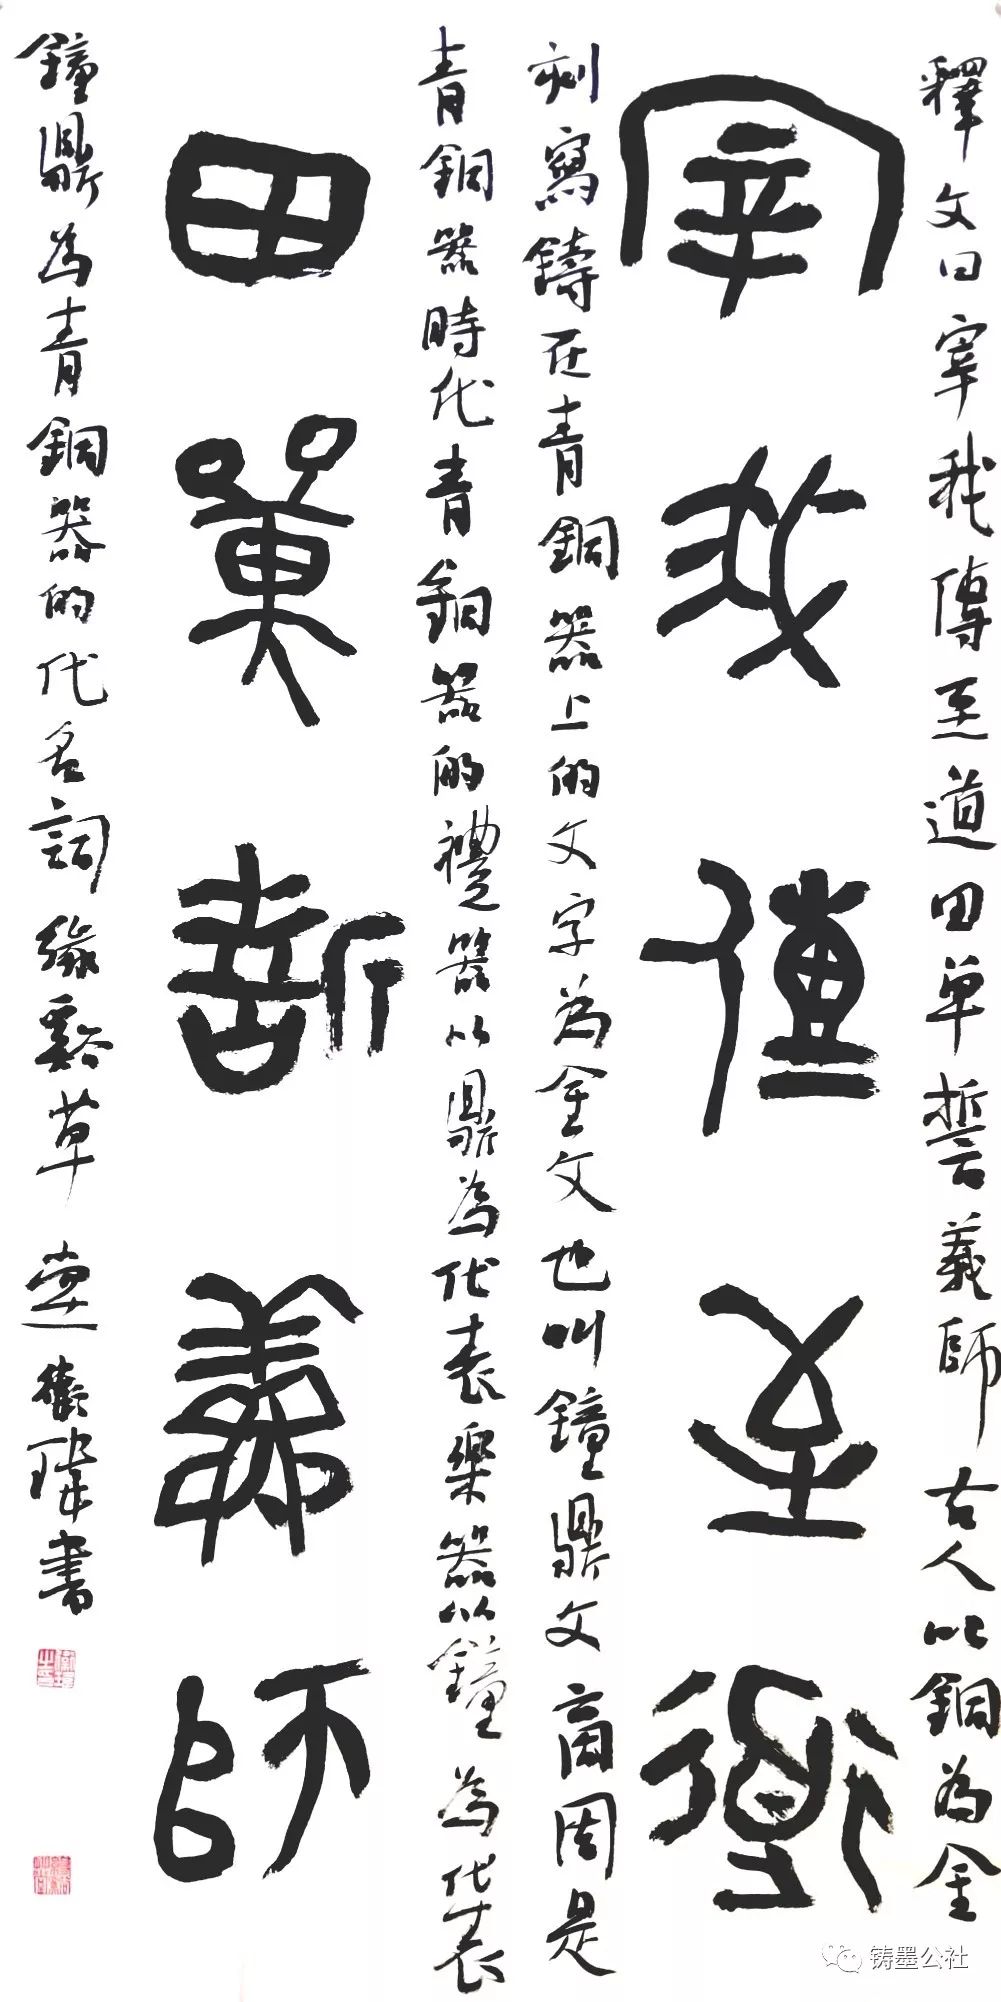 釋文曰宰我傳至道田單誓義師古人以銅為金
宰我傳至道
刻寫鑄在青銅器上的文字為金文也叫鐘鼎文商周是
青銅器時代青銅器的禮器以鼎為代表樂器以鐘為代表
田單誓義師
鐘鼎為青銅器的代名詞緣谿草堂 衛瑋書
铸墨公社